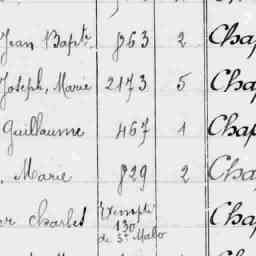 Jean Bapte 863 2 Cha
Joseph, Marie 2173 5 Cha
Guillaume 467 1 Chap
Marie 829 2 Cha
er Charles Exempté Cha
130
de St Malo